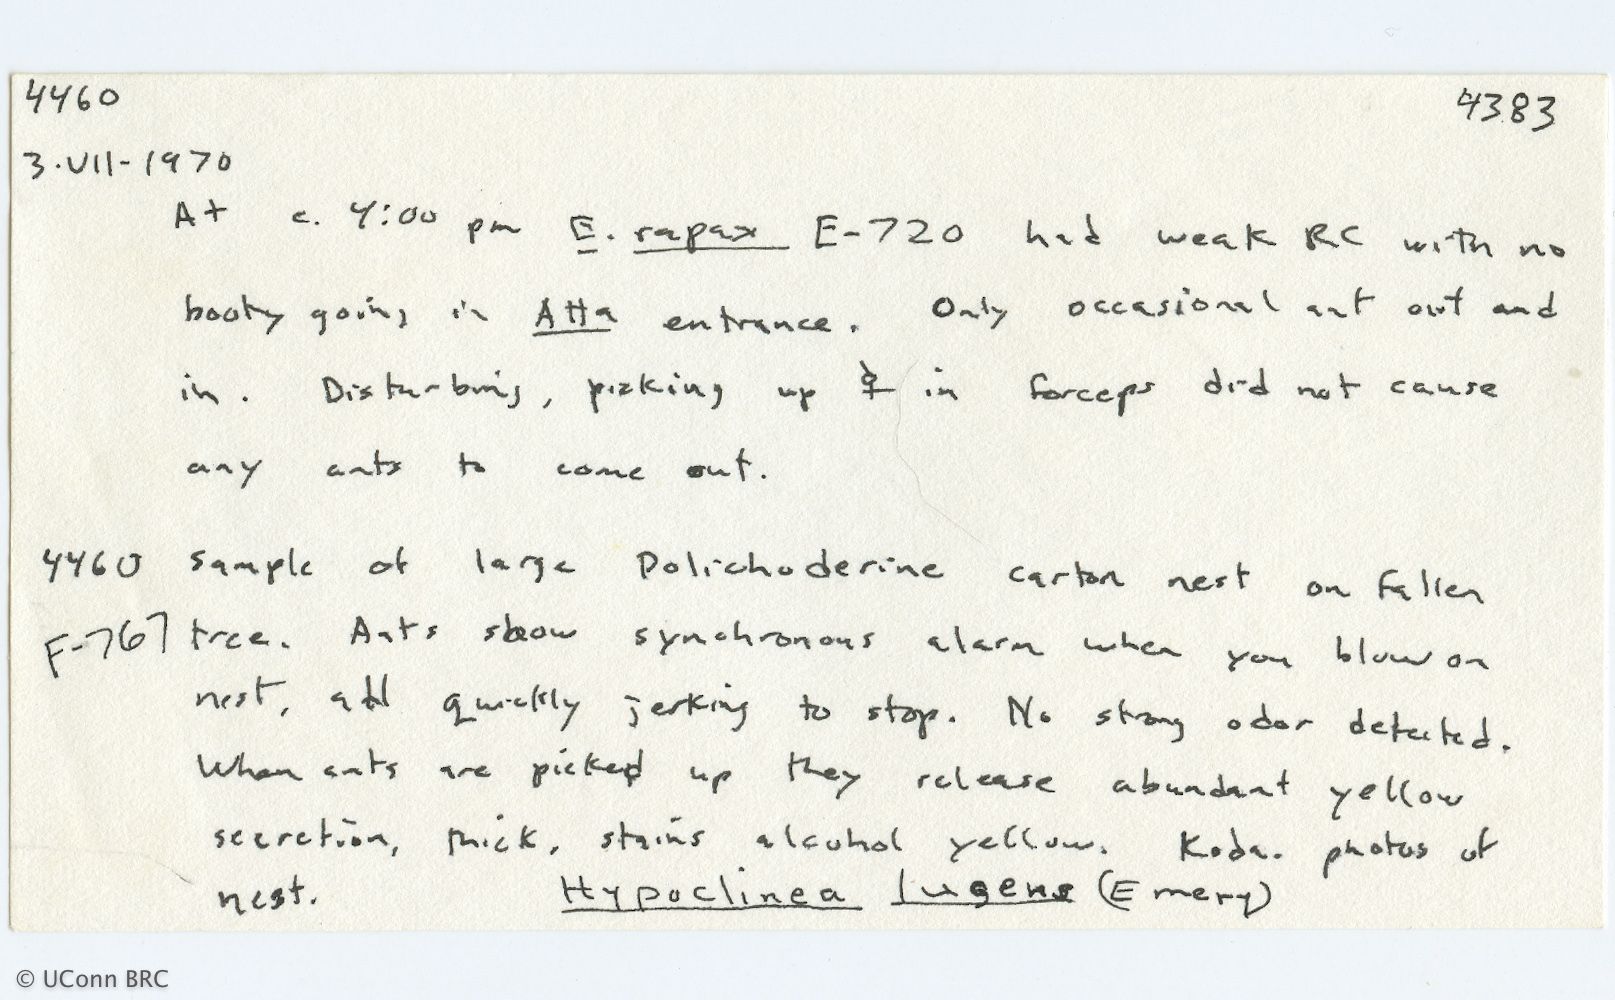 4460 4383
3.VII-1970
At c. 4:00 pm E. rapax E-720 had weak RC with no
booty going in Atta entrance. Only occasional ant out and
in. Disturbing, picking up ☿ in forceps did not cause
any ants to come out.
4460 Sample of large Dolichoderine carton nest on fallen
F-767 tree. Ants show synchronous alarm when you blow on
nest, all quickly jerking to stop. No strong odor detected.
When ants are picked up they release abundant yellow
secretion, thick, stains alcohol yellow. Koda. photos of
nest. Hypoclinea lugens (Emery)
© UConn BRC